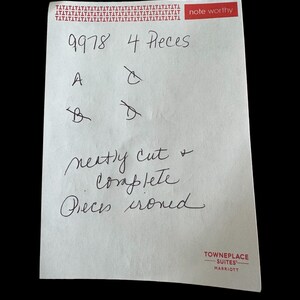 note worthy
9978 4 Pieces
A C
B D
neatly cut +
complete
Pieces ironed
TOWNEPLACE
SUITES®
MARRIOTT